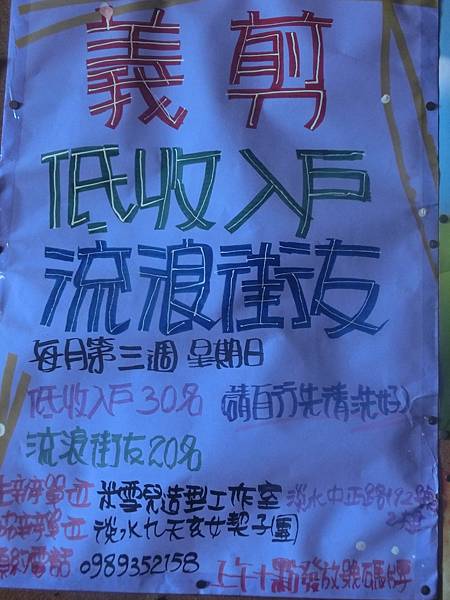 義剪
低收入戶
流浪街友
每月第三週 星期日
低收入戶30名 (請自行先清洗好)
流浪街友20名
主辦單位 米雪兒造型工作室 淡水中正路192號
2樓
協辦單位 淡水九天玄女契子(團)
預約電話 0989352158 上午十點發放號碼牌